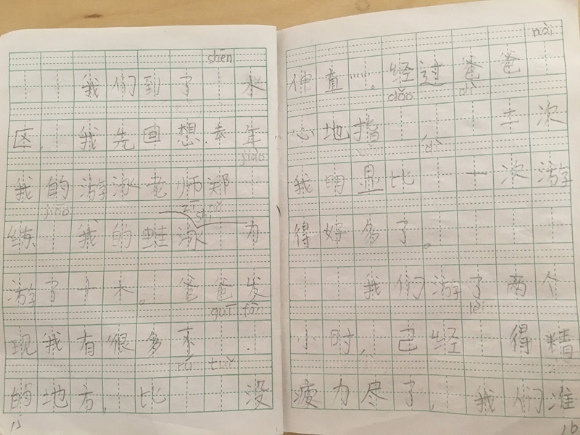 shēn
我们到了 水
区，我先回想去年
我的游泳老师郑
练 我的蛙泳
游了十米。爸爸发
guī fàn
现我有很多不
rú tuǐ
的地方，比 没
nài
伸直……。经过爸爸
diǎn
心地指
我明显比 一次游
得好多了。
我们游了两个
小时，已经 得精
疲力尽了，我们准